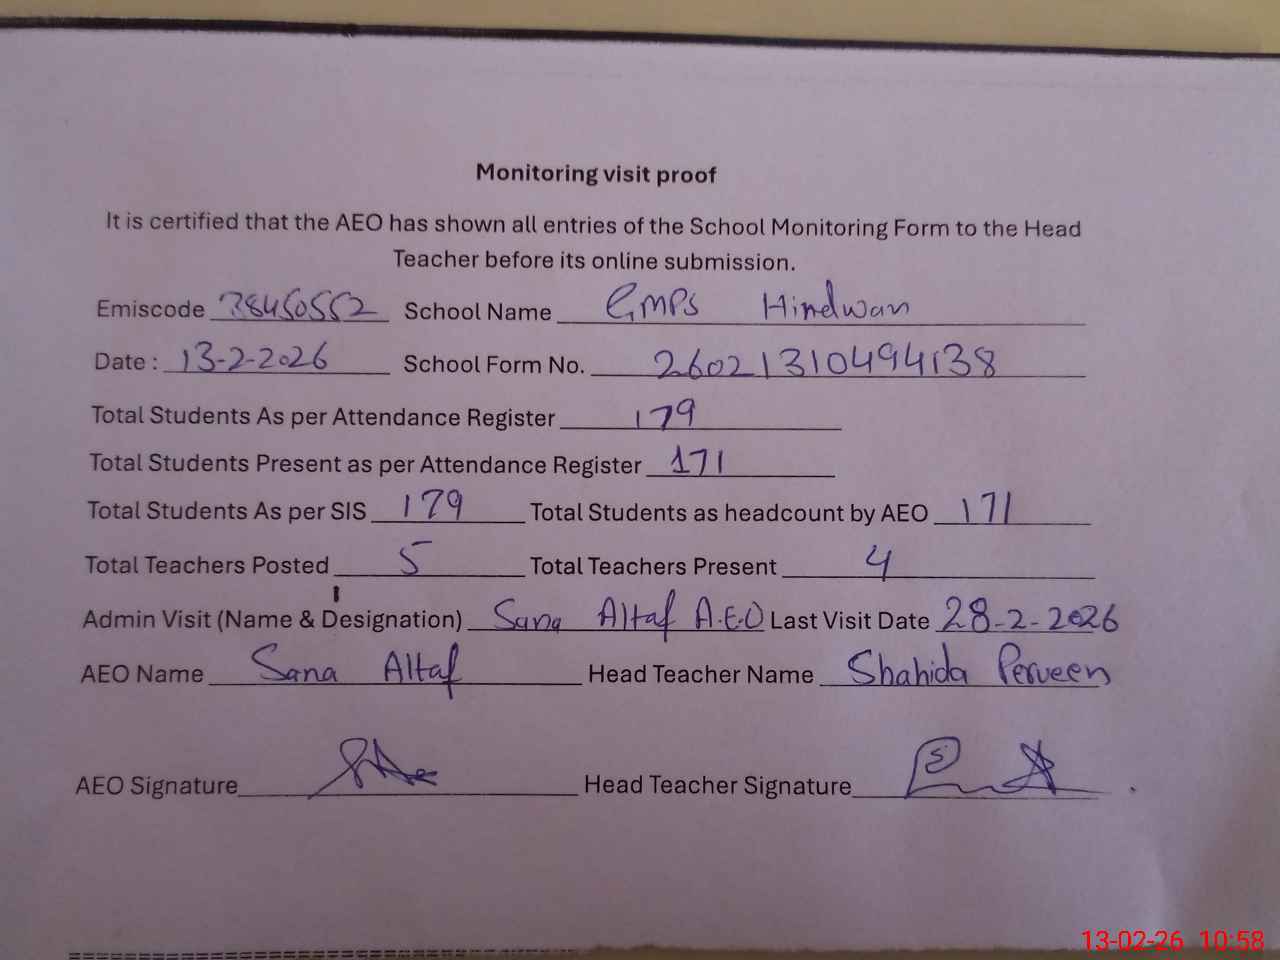 Monitoring visit proof
It is certified that the AEO has shown all entries of the School Monitoring Form to the Head
Teacher before its online submission.
Emiscode 38450552 School Name GMPS Hindwan
Date : 13-2-2026 School Form No. 26021310494138
Total Students As per Attendance Register 179
Total Students Present as per Attendance Register 171
Total Students As per SIS 179 Total Students as headcount by AEO 171
Total Teachers Posted 5 Total Teachers Present 4
Admin Visit (Name & Designation) Sana Altaf A.E.O Last Visit Date 28-2-2026
AEO Name Sana Altaf Head Teacher Name Shahida Perveen
AEO Signature Head Teacher Signature
13-02-26 10:58